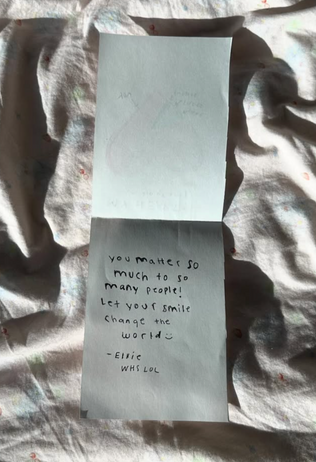 you matter so
much to so
many people!
Let your smile
change the
world
- Ellie
WHS LOL